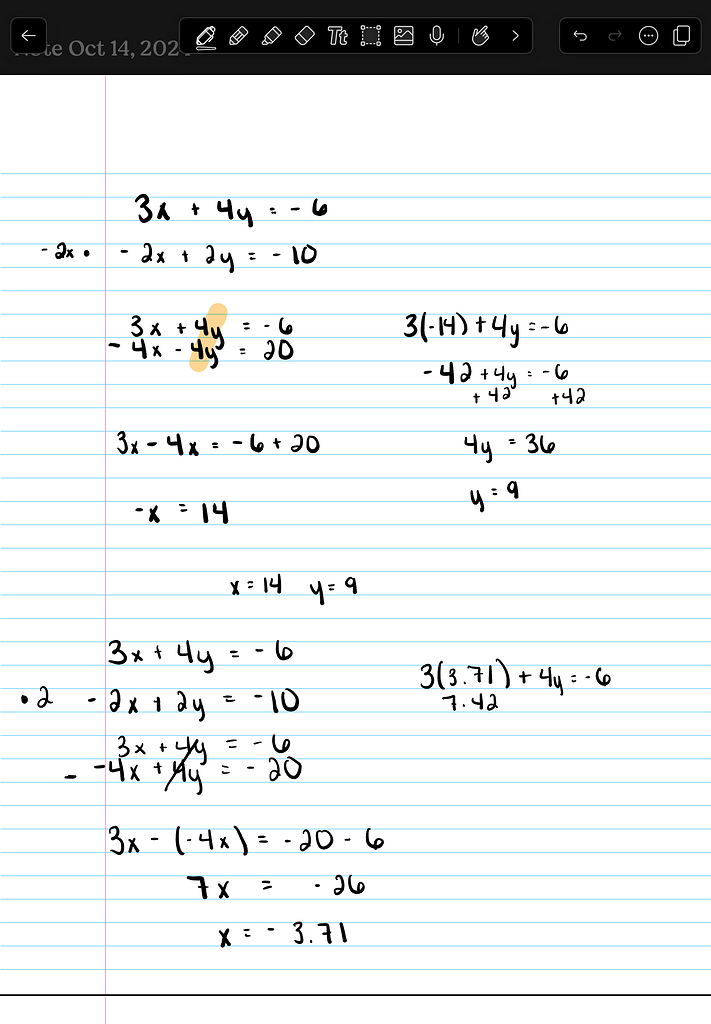 Note Oct 14, 202
Tt
3x + 4y = - 6
- 2x • - 2x + 2y = - 10
3x + 4y = - 6
- 4x - 4y = 20
3x - 4x = - 6 + 20
-x = 14
3(-14) + 4y = -6
- 42 + 4y = -6
+ 42 +42
4y = 36
y = 9
x = 14 y = 9
3x + 4y = - 6
• 2 - 2x + 2y = - 10
3x + 4y = - 6
- -4x + 4y = - 20
3x - (-4x) = - 20 - 6
7x = - 26
x = - 3.71
3(3.71) + 4y = - 6
7.42